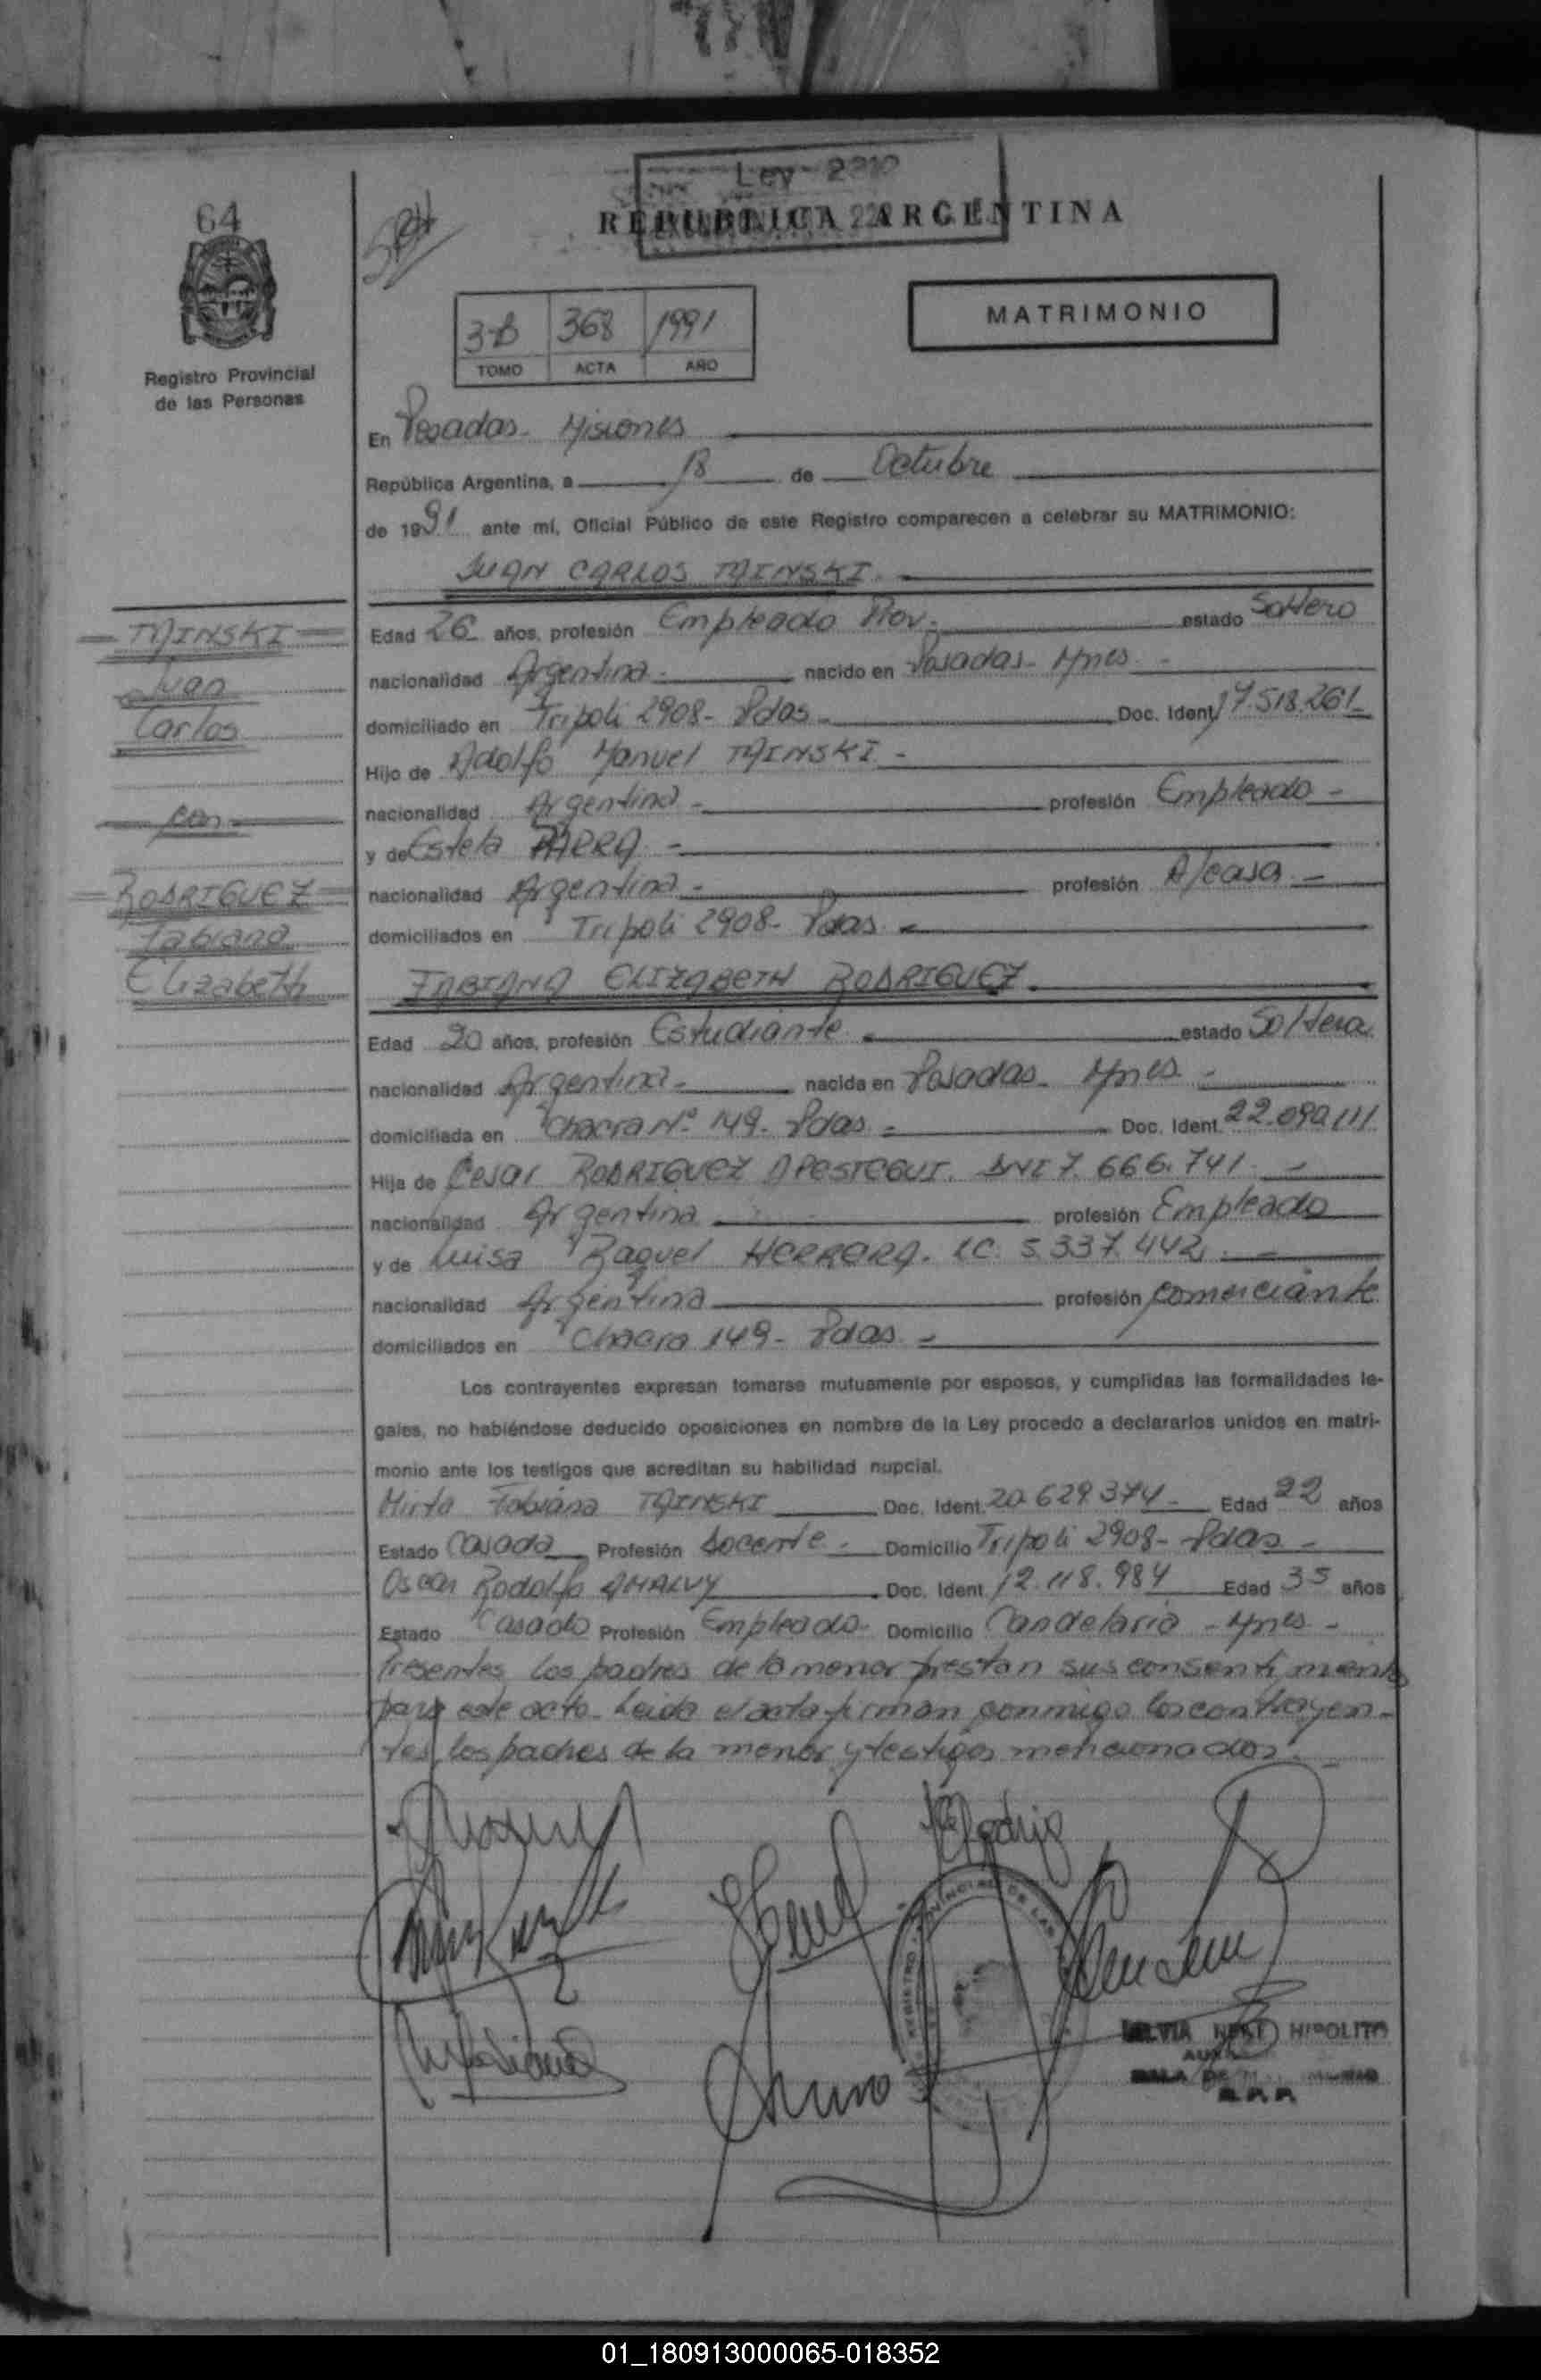 Ley 2210
64
REPUBLICA ARGENTINA
3-B 368 1991
TOMO ACTA AÑO
MATRIMONIO
Registro Provincial
de las Personas
En Posadas - Misiones
República Argentina, a 18 de Octubre
de 1991 ante mí, Oficial Público de este Registro comparecen a celebrar su MATRIMONIO:
JUAN CARLOS TAINSKI
TAINSKI
Juan
Carlos
con
RODRIGUEZ
Fabiana
Elizabeth
Edad 26 años, profesión Empleado Prov. estado Soltero
nacionalidad Argentina - nacido en Posadas - Mnes -
domiciliado en Tripoli 2908 - Pdas - Doc. Ident. 17.518.261-
Hijo de Adolfo Manuel TAINSKI -
nacionalidad Argentina - profesión Empleado -
y de Estela PARRA -
nacionalidad Argentina - profesión A/casa -
domiciliados en Tripoli 2908 - Pdas -
FABIANA ELIZABETH RODRIGUEZ
Edad 20 años, profesión Estudiante - estado Soltera
nacionalidad Argentina - nacida en Posadas - Mnes -
domiciliada en Chacra Nº 149 - Pdas - Doc. Ident. 22.090.111
Hija de Cesar RODRIGUEZ APESTEGUI. DNI 7.666.741 -
nacionalidad Argentina profesión Empleado
y de Luisa Raquel HERRERA. LC. 5.337.442 -
nacionalidad Argentina profesión comerciante
domiciliados en Chacra 149 - Pdas -
Los contrayentes expresan tomarse mutuamente por esposos, y cumplidas las formalidades le-
gales, no habiéndose deducido oposiciones en nombre de la Ley procedo a declararlos unidos en matri-
monio ante los testigos que acreditan su habilidad nupcial.
Mirta Fabiana TAINSKI Doc. Ident. 20.629.374 - Edad 22 años
Estado Casada Profesión Docente - Domicilio Tripoli 2908 - Pdas -
Oscar Rodolfo AMALVY Doc. Ident. 12.118.984 Edad 35 años
Estado Casado Profesión Empleado - Domicilio Candelaria - Mnes -
Presentes los padres de la menor prestan sus consentimiento
para este acto. Leida el acta firman conmigo los contrayen-
tes, los padres de la menor y testigos mencionados. -
HIPOLITO
R.P.P.
01_180913000065-018352